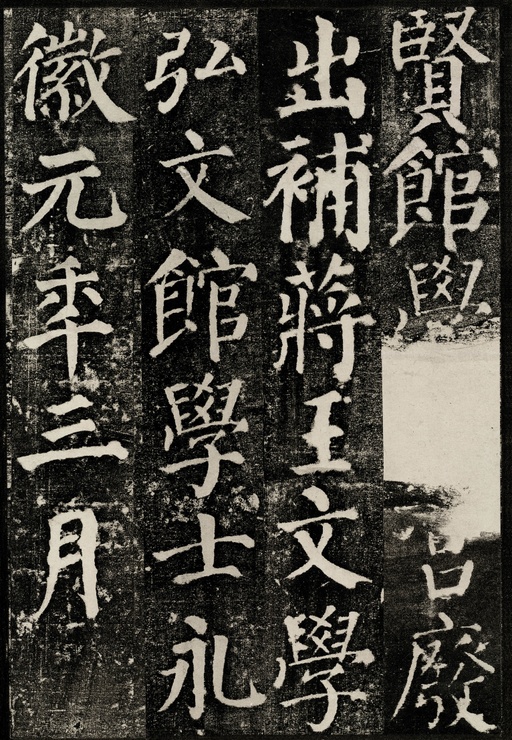 賢館學宮廢
出補蔣王文學
弘文館學士永
徽元年三月